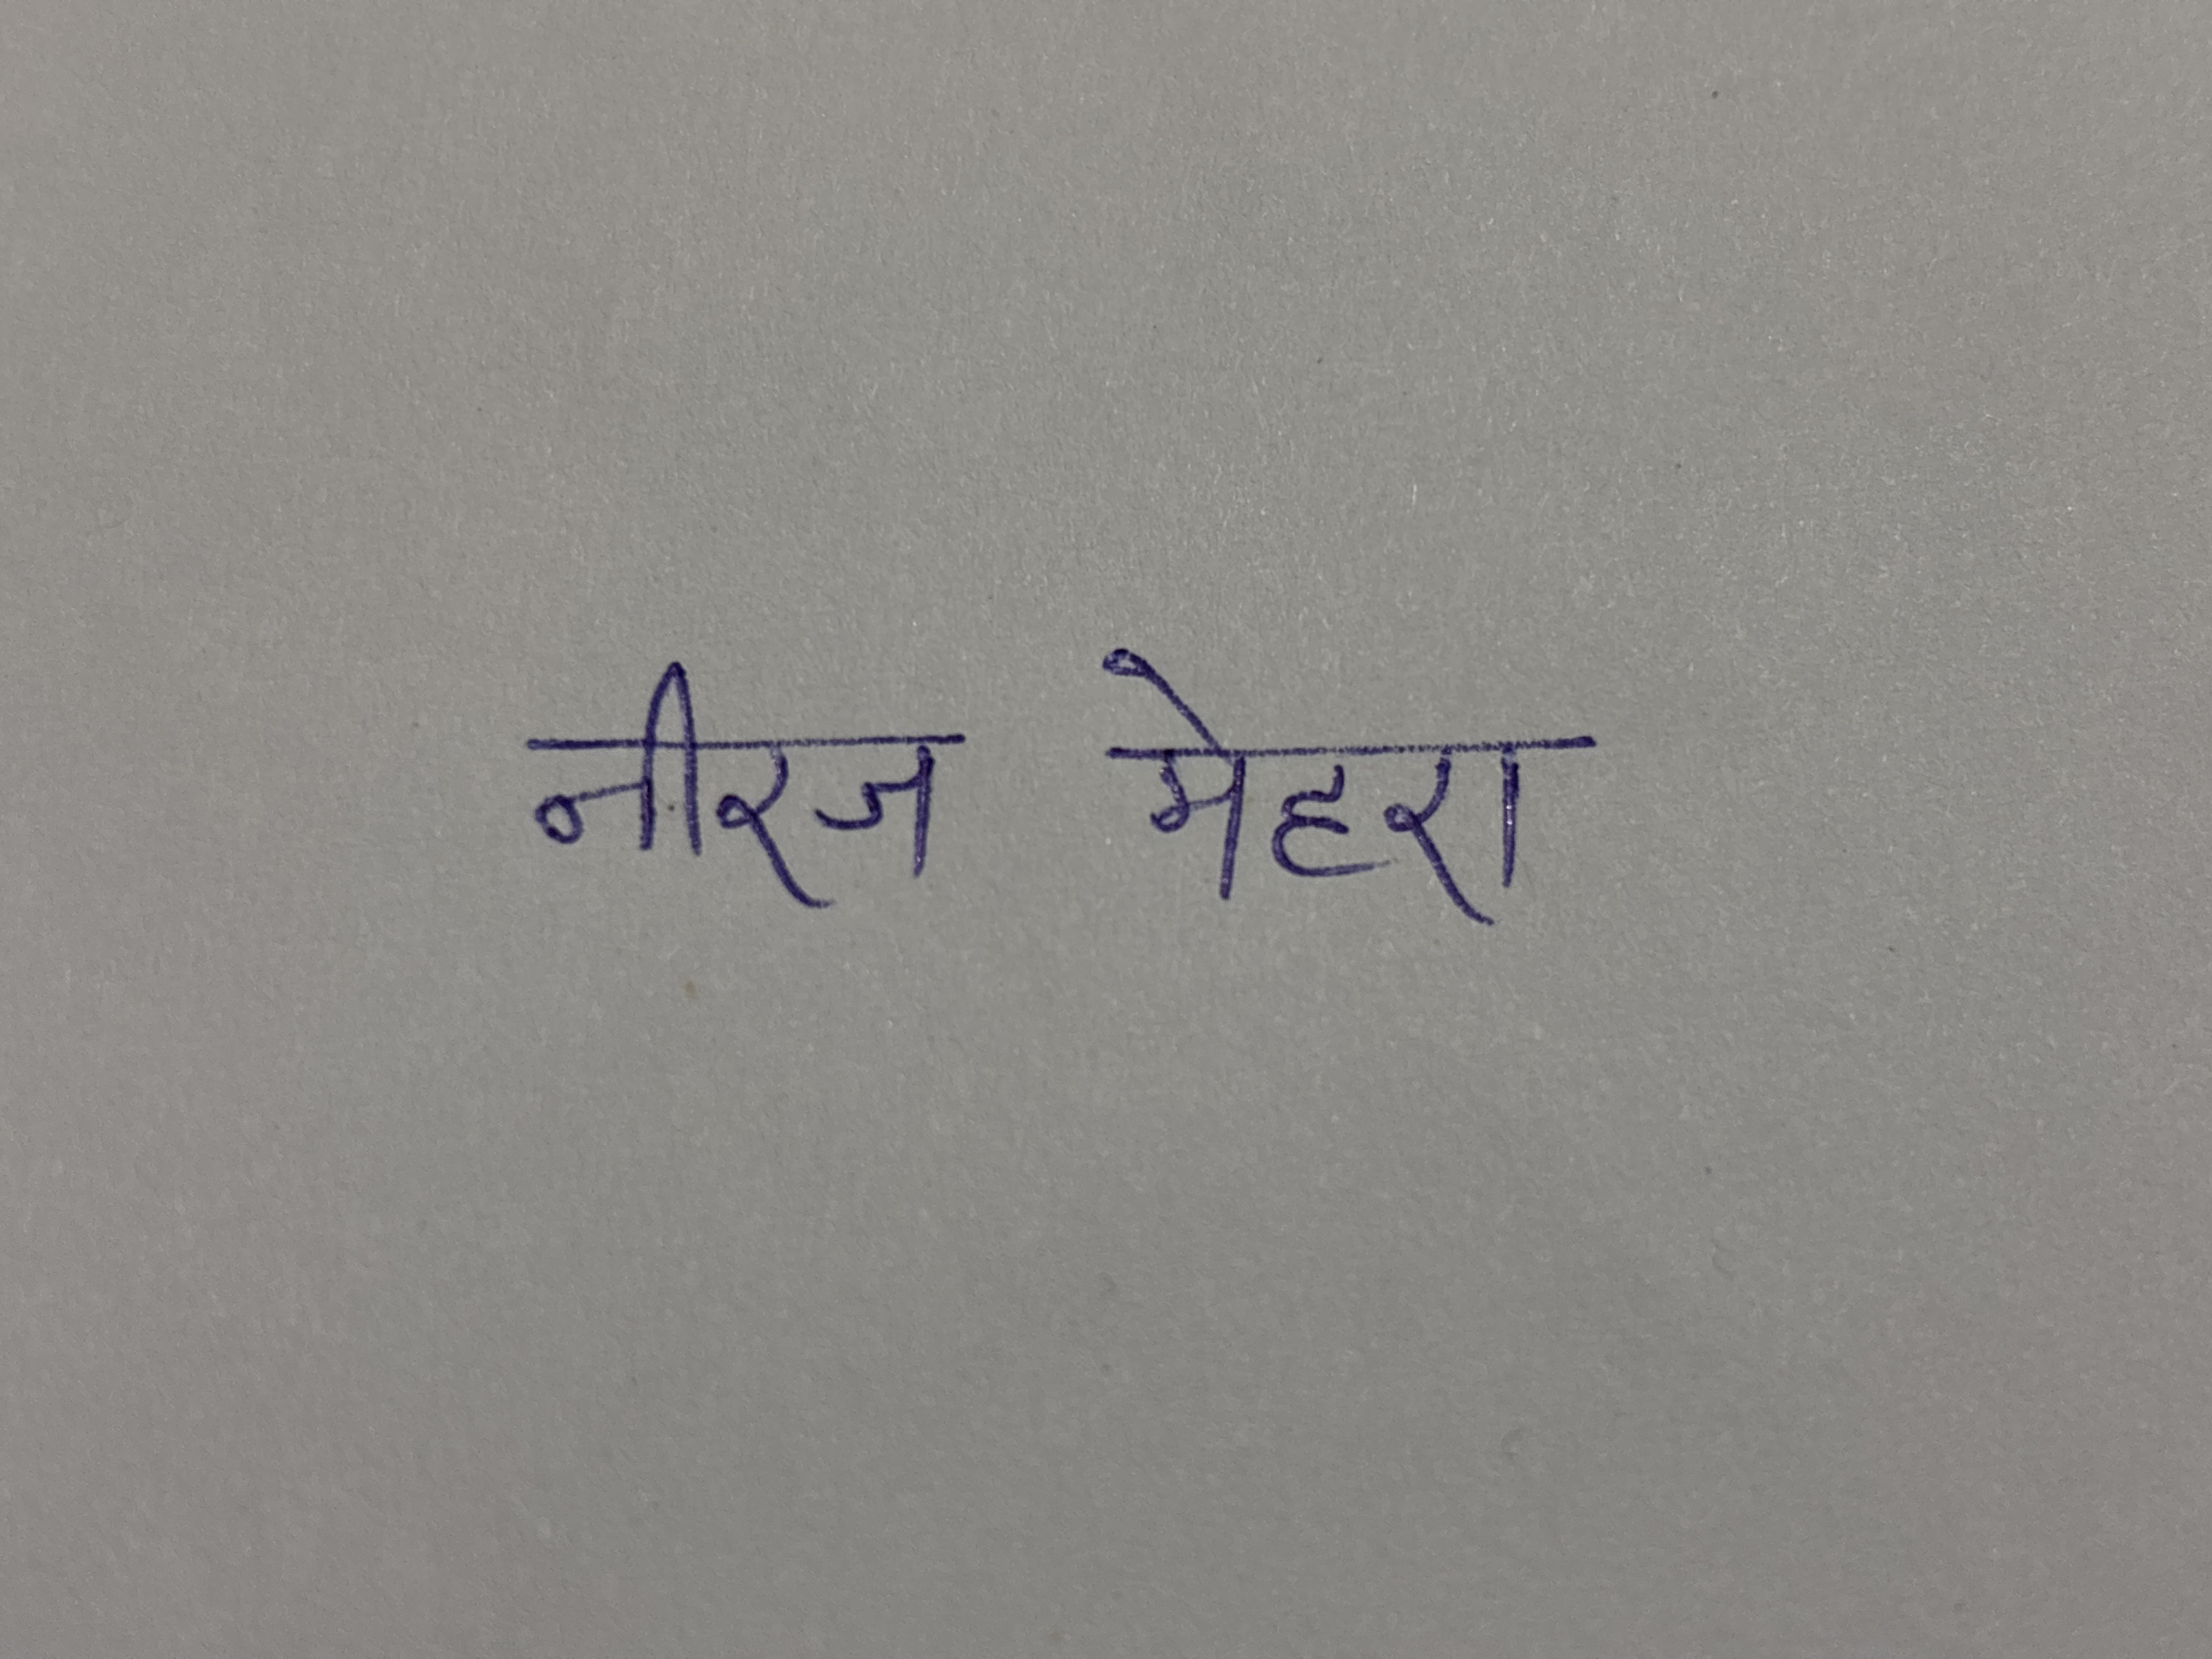 नीरज मेहरा